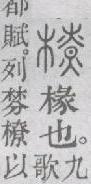 橑 椽也。九
歌
都賦。列棼橑以